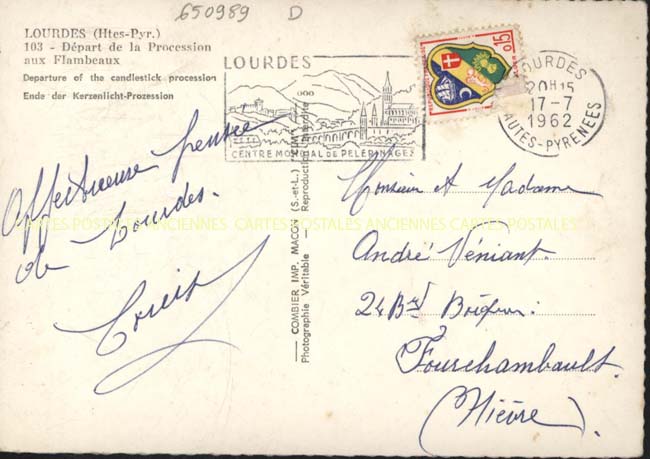 650989 D
LOURDES (Htes-Pyr.)
103 - Départ de la Procession
aux Flambeaux
Departure of the candlestick procession
Ende der Kerzenlicht-Prozession
LOURDES
CENTRE MONDIAL DE PELERINAGES
0,15
LOURDES
20H15
17-7
1962
HAUTES-PYRENEES
Affectueuse pensée
de Lourdes.
COMBIER IMP. MACON (S.-et-L.)
Photographie Véritable - Reproduction Interdite
CARTES POSTALES ANCIENNES CARTES POSTALES ANCIENNES CARTES POSTALES
Monsieur et Madame
André Véniant.
24 Bd
Fourchambault.
(Nièvre).